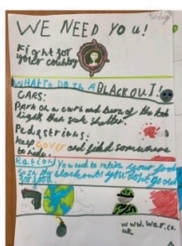 WE NEED YOU!
Fight for
your country
WHAT TO DO IN A BLACKOUT!
CARS:
Park on curb and turn of the
light then seek shelter.
Pedestrians:
keep cover and find somewhere
to hide.
Ration You need to ration your food
www.war.co.
uk